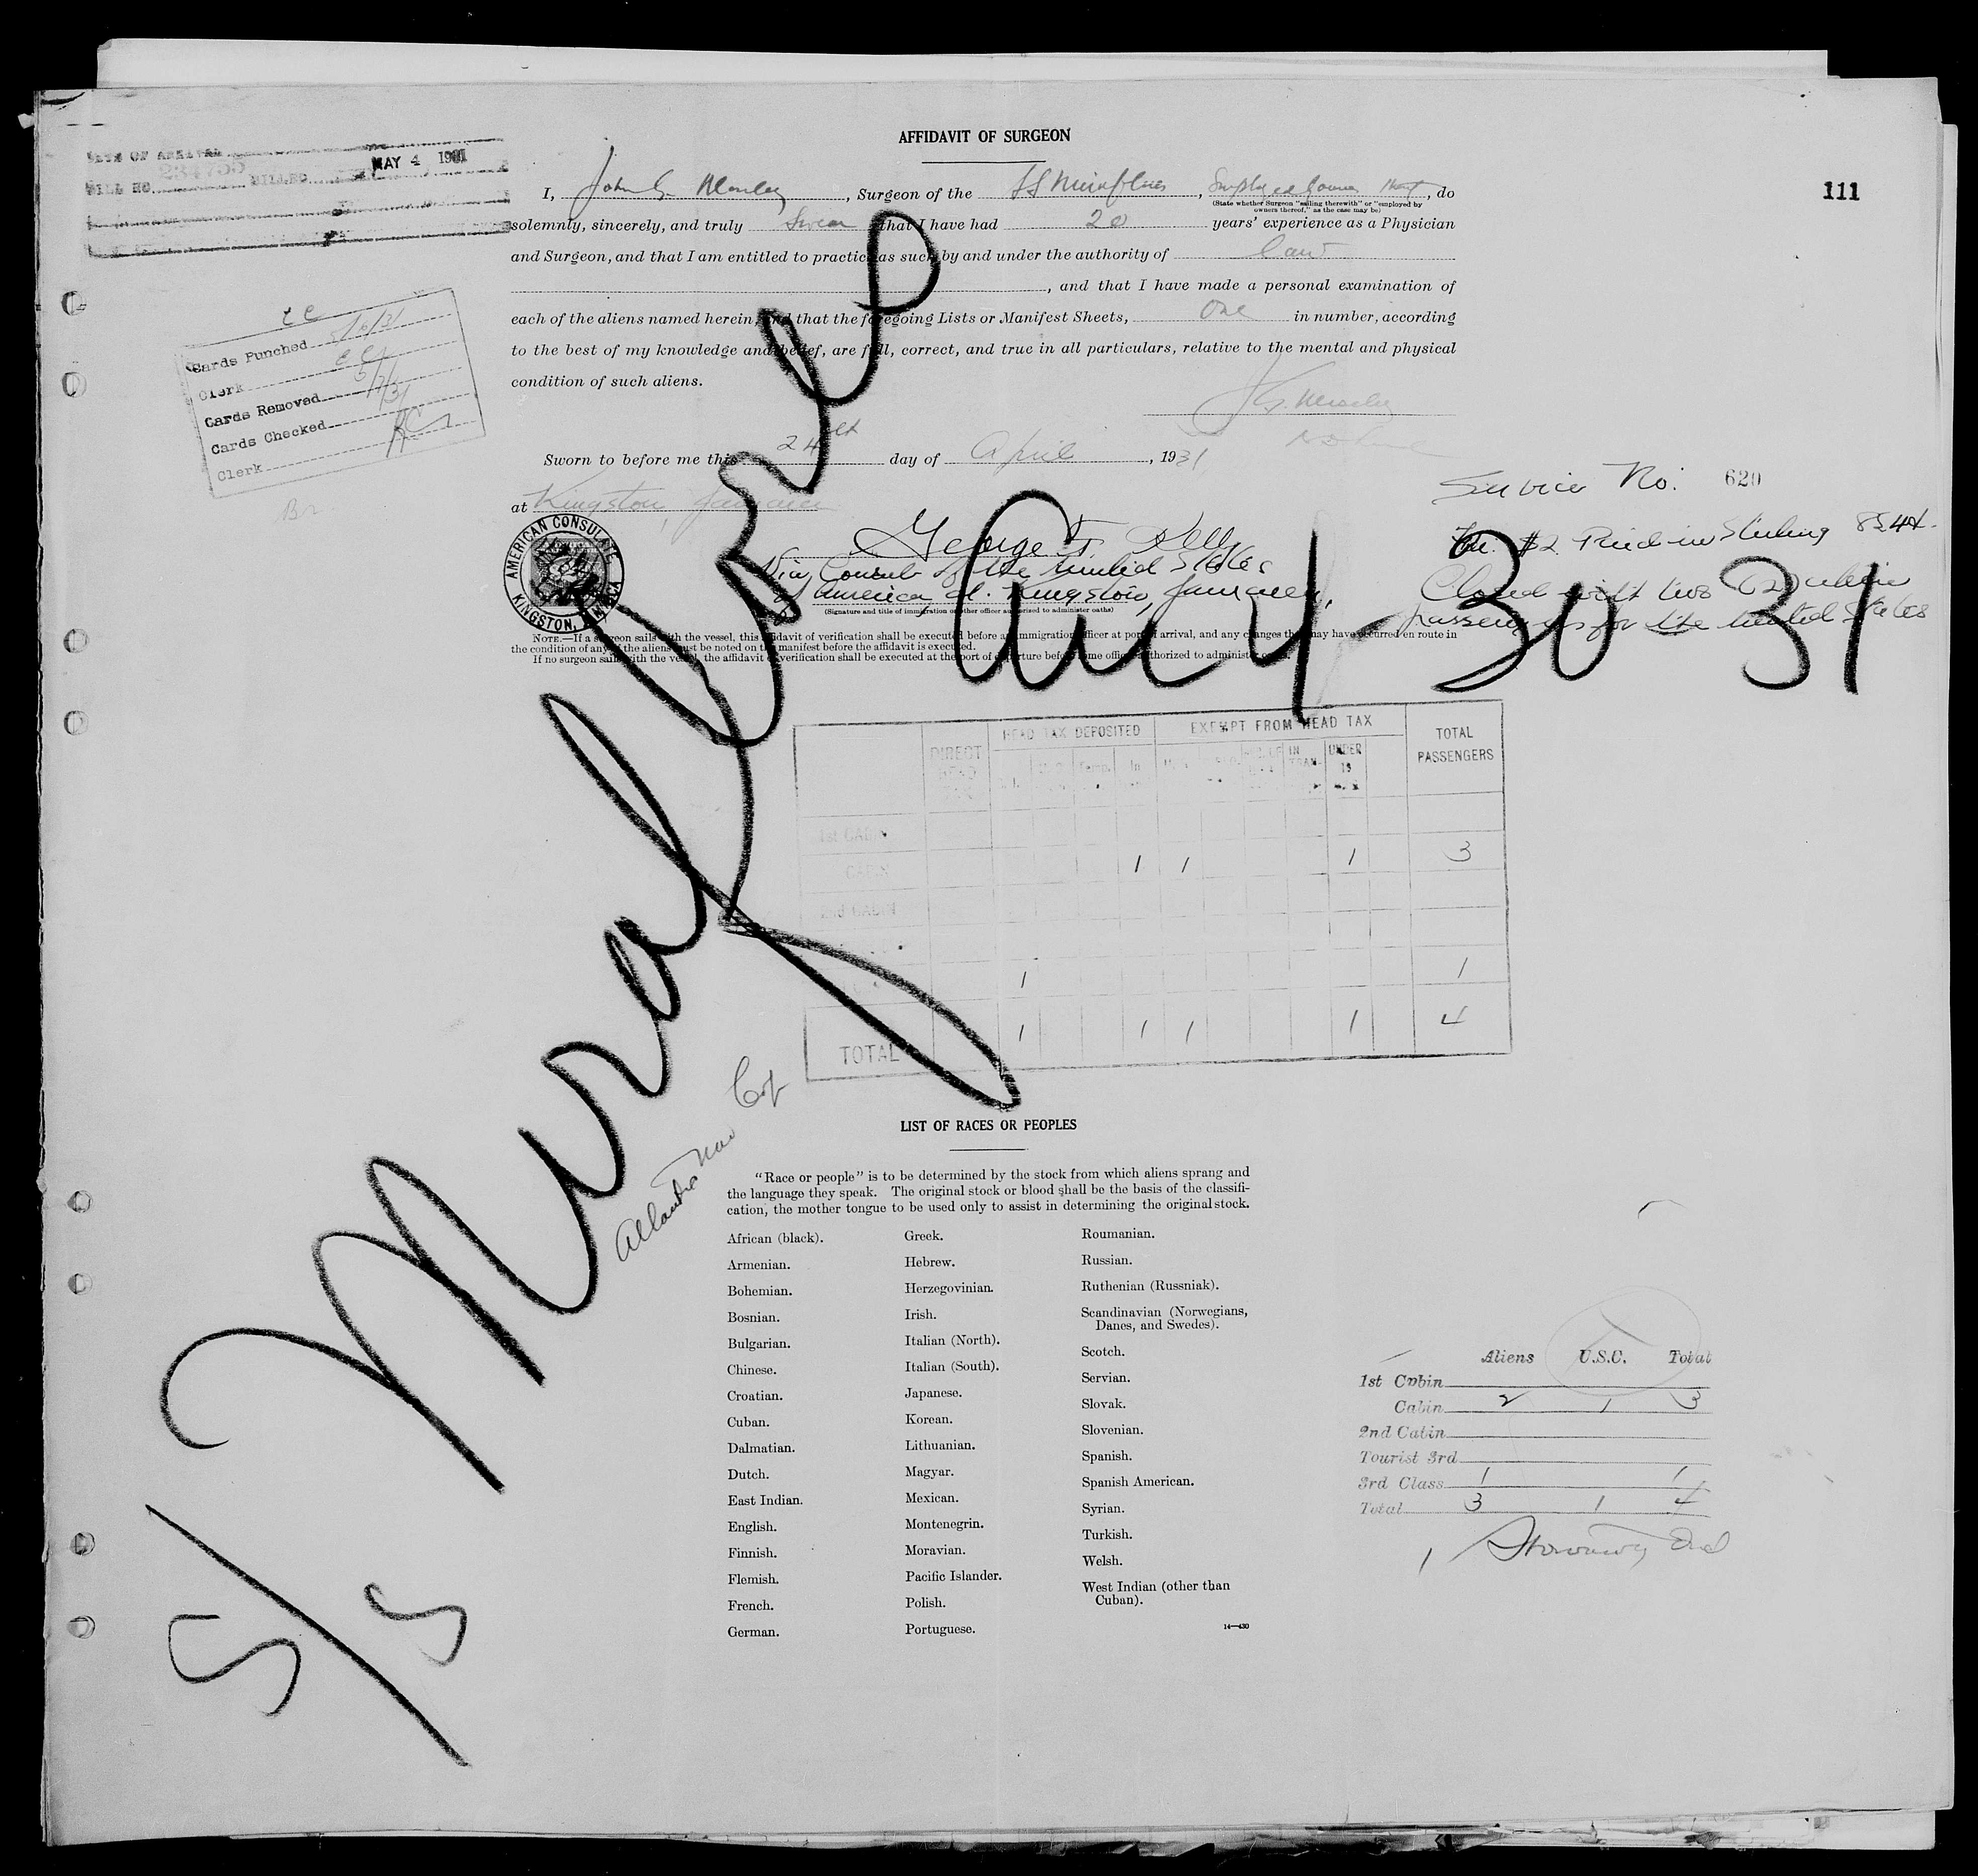 AFFIDAVIT OF SURGEON
111
DATE OF ARRIVAL
MAY 4 1931
BILL NO. 234755 BILLED
I, John G. , Surgeon of the SS , Employed Owners , do
(State whether Surgeon "sailing therewith" or "employed by
owners thereof," as the case may be)
solemnly, sincerely, and truly Swear that I have had 20 years' experience as a Physician
and Surgeon, and that I am entitled to practice as such by and under the authority of law
, and that I have made a personal examination of
each of the aliens named herein, and that the foregoing Lists or Manifest Sheets, One in number, according
to the best of my knowledge and belief, are full, correct, and true in all particulars, relative to the mental and physical
condition of such aliens.
J. G.
Sworn to before me this 24th day of April, 1931
at Kingston, Jamaica
George F. Kelly
Vice Consul of the United States
of America at Kingston, Jamaica,
(Signature and title of immigration or other officer authorized to administer oaths)
AMERICAN CONSULATE
KINGSTON, JAMAICA
NOTE.—If a surgeon sails with the vessel, this affidavit of verification shall be executed before an immigration officer at port of arrival, and any changes that may have occurred en route in
the condition of any of the aliens must be noted on the manifest before the affidavit is executed.
If no surgeon sails with the vessel, the affidavit of verification shall be executed at the port of departure before some officer authorized to administer oaths.
CC
Cards Punched
Clerk CC
Cards Removed 5/7/31
Cards Checked
Clerk
Br
Service No. 620
Fee $2 Paid in Sterling 8S4d.
Closed with two (2) alien
passengers for the United States
4-30 31
DIRECT HEAD TAX
HEAD TAX DEPOSITED
EXEMPT FROM HEAD TAX
TOTAL PASSENGERS
Temp.
In
IN TRAN-
UNDER 16
1st CABIN
CABIN 1 1 1 3
2nd CABIN
1 1
TOTAL 1 1 1 1 4
Atlantic Nav Cop
S/S
LIST OF RACES OR PEOPLES
"Race or people" is to be determined by the stock from which aliens sprang and
the language they speak. The original stock or blood shall be the basis of the classifi-
cation, the mother tongue to be used only to assist in determining the original stock.
African (black).
Armenian.
Bohemian.
Bosnian.
Bulgarian.
Chinese.
Croatian.
Cuban.
Dalmatian.
Dutch.
East Indian.
English.
Finnish.
Flemish.
French.
German.
Greek.
Hebrew.
Herzegovinian.
Irish.
Italian (North).
Italian (South).
Japanese.
Korean.
Lithuanian.
Magyar.
Mexican.
Montenegrin.
Moravian.
Pacific Islander.
Polish.
Portuguese.
Roumanian.
Russian.
Ruthenian (Russniak).
Scandinavian (Norwegians,
Danes, and Swedes).
Scotch.
Servian.
Slovak.
Slovenian.
Spanish.
Spanish American.
Syrian.
Turkish.
Welsh.
West Indian (other than
Cuban).
14—430
Aliens U.S.C. Total
1st Cabin
Cabin 2 1 3
2nd Cabin
Tourist 3rd
3rd Class 1 1
Total 3 1 4
1 Stowaway